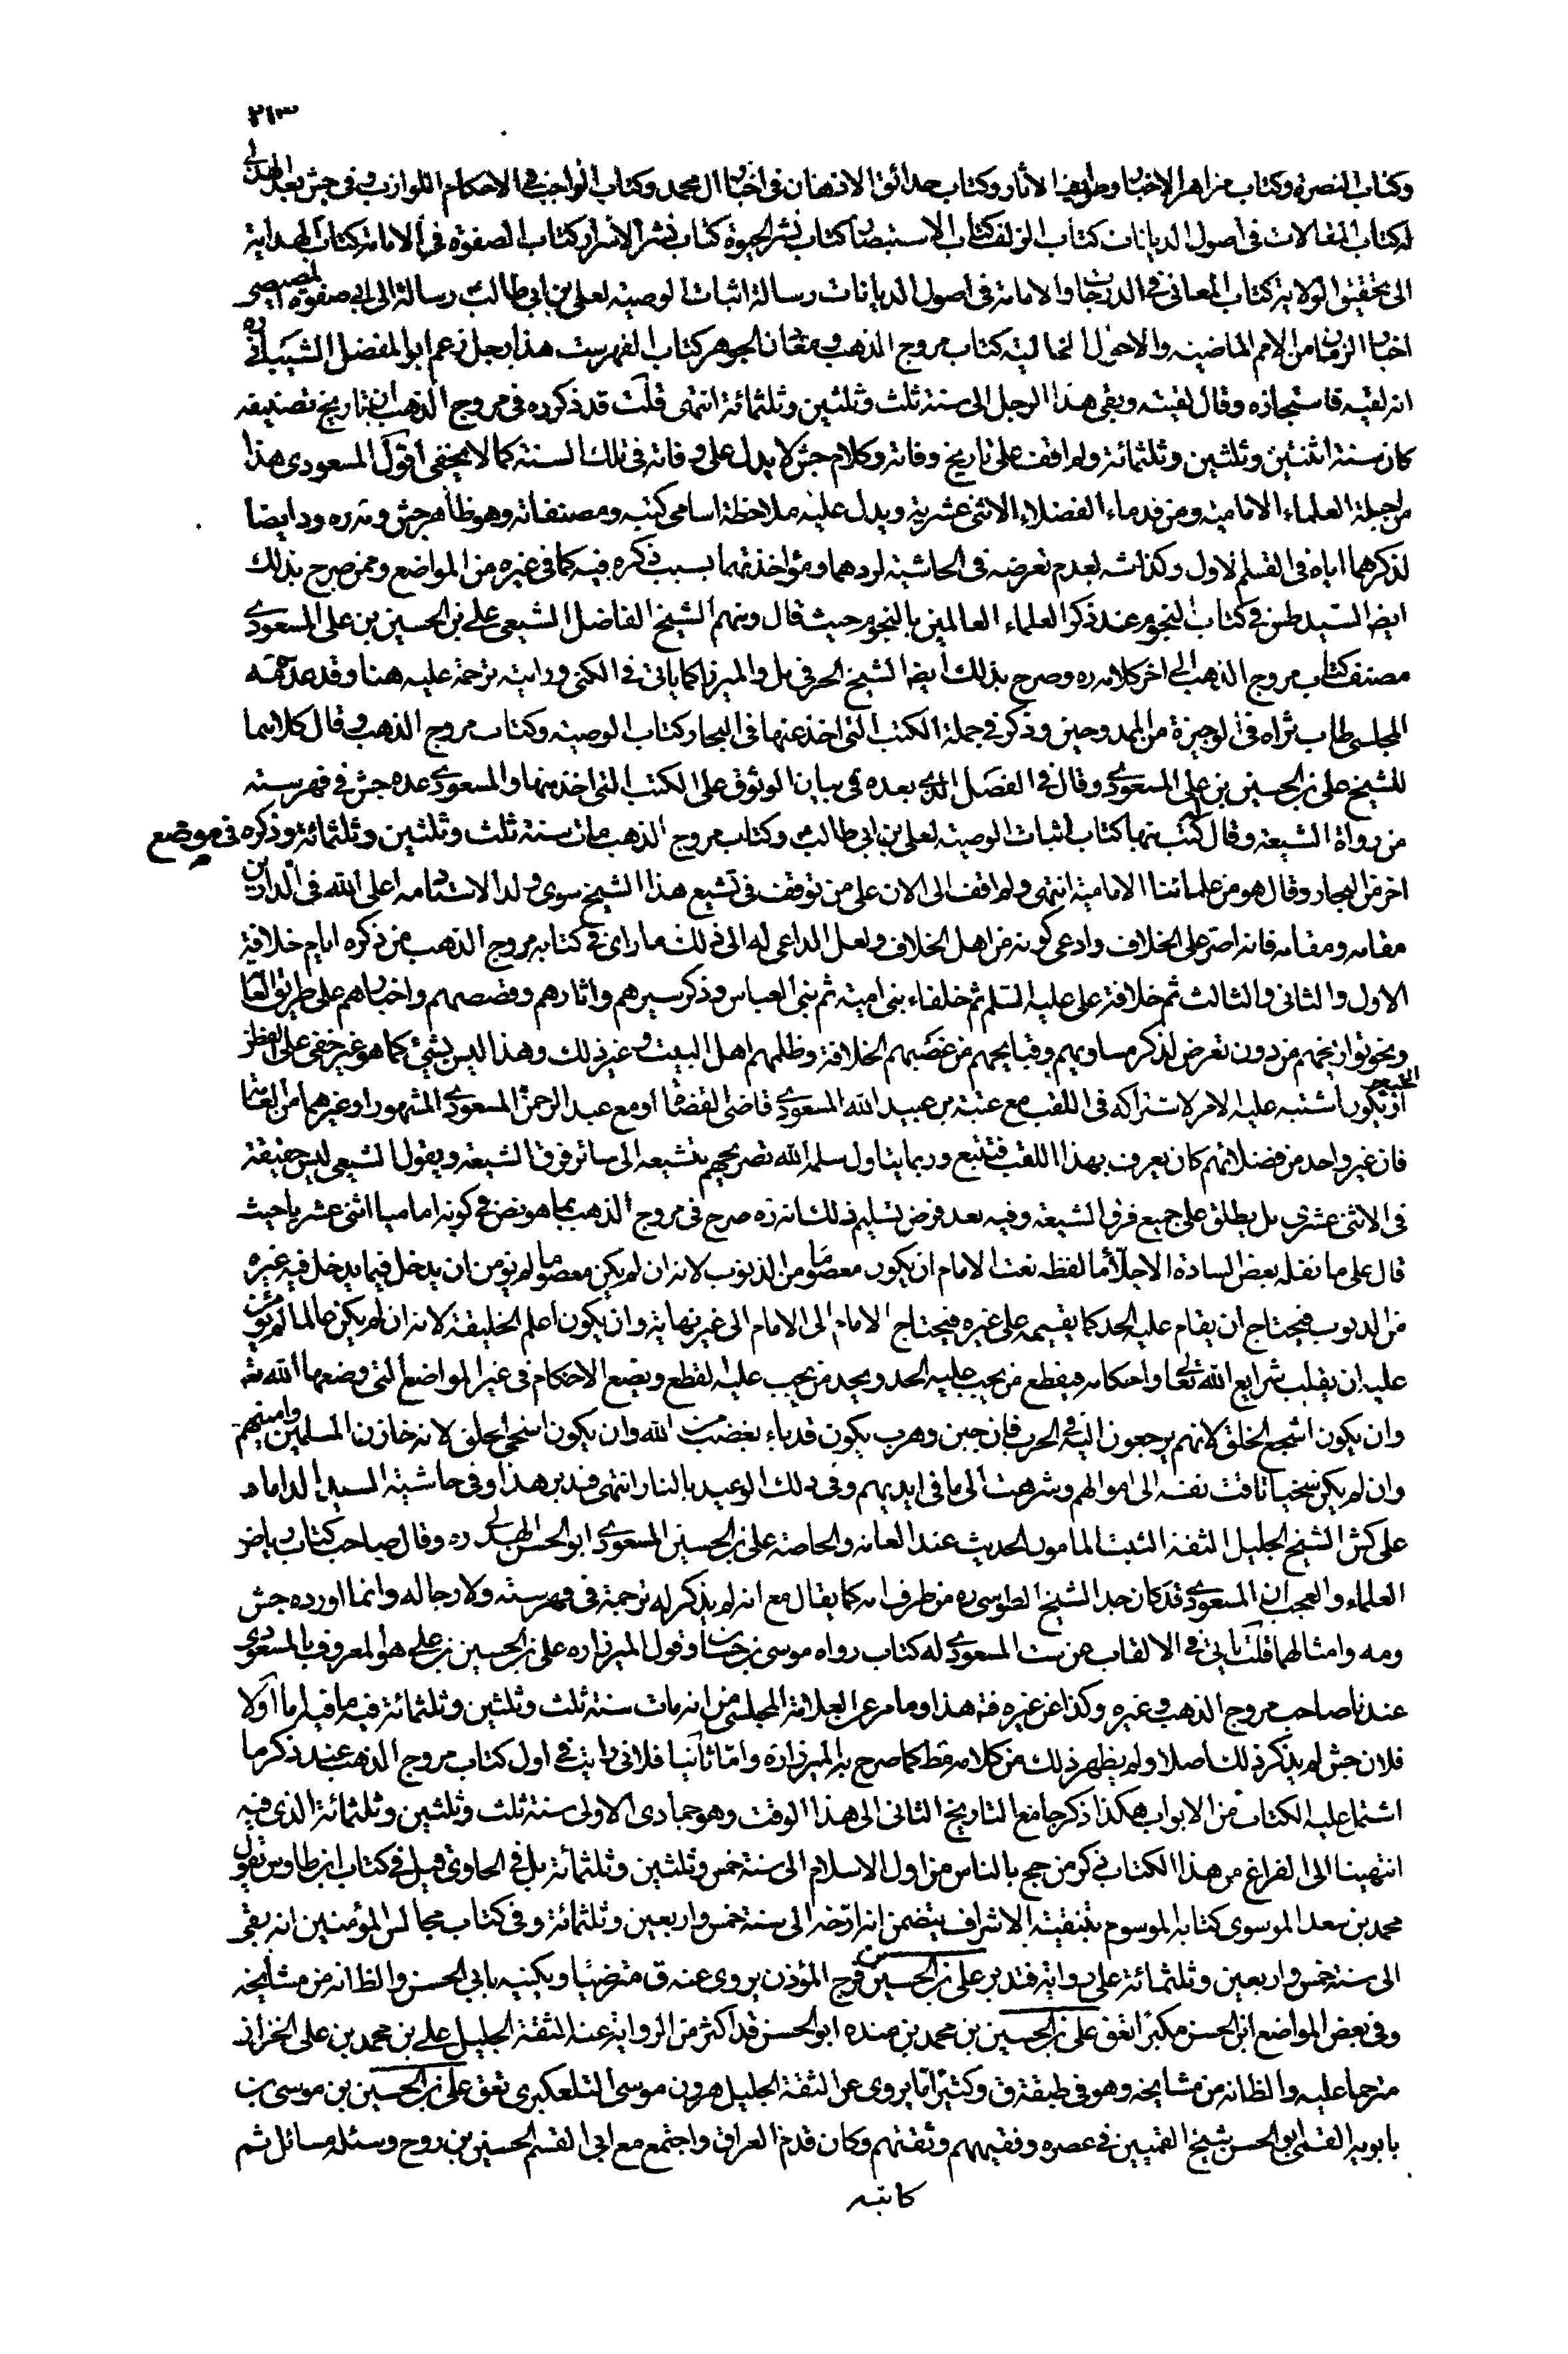 ٢١٣
وكتاب النصرة وكتاب مزاهر الاخبار وطرايف الاثار وكتاب حدائق الاذهان فى اخبار ال محمد وكتاب الواجب فى الاحكام اللوازب وفى جش بعد الهذلى
له كتاب المقالات فى اصول الديانات كتاب الزلف كتاب الاستبصار كتاب نشر الحيوة كتاب نشر الاسرار كتاب الصفوة فى الامامة كتاب الهداية
الى تحقيق الولاية كتاب المعانى فى الدرجات والامامة فى اصول الديانات رسالة اثبات الوصية لعلى بن ابى طالب رسالة الى ابى صفوة المصيصى
اخبار الزمان من الامم الماضية والاحوال الخالية كتاب مروج الذهب ومعادن الجوهر كتاب الفهرست هذا رجل زعم ابو المفضل الشيبانى ره
انه لقيه فاستجازه وقال لقيته وبقى هذا الرجل الى سنة ثلث وثلثين وثلثمائة انتهى قلت قد ذكر ره فى مروج الذهب ان تاريخ تصنيفه
كان سنة اثنتين وثلثين وثلثمائة ولم اقف على تاريخ وفاته وكلام جش لا يدل على وفاته فى تلك السنة كما لا يخفى اقول المسعودى هذا
من اجلة العلماء الامامية ومن قدماء الفضلاء الاثنى عشرية ويدل عليه ملاحظة اسامى كتبه ومصنفاته وهو ظاهر جش ومه ره ود ايضا
لذكرهما اياه فى القسم الاول وكذا شه لعدم تعرضه فى الحاشية لردهما ومؤاخذتهما بسبب ذكره فيه كما فى غيره من المواضع وممن صرح بذلك
ايضا السيد طس فى كتاب النجوم عند ذكر العلماء العالمين بالنجوم حيث قال ومنهم الشيخ الفاضل الشيعى على بن الحسين بن على المسعودى
مصنف كتاب مروج الذهب الى اخر كلامه ره وصرح بذلك ايضا الشيخ الحر فى مل والميرزا كما ياتى فى الكنى ورايته ترحم عليه هنا وقد عده
المجلسى طاب ثراه فى الوجيزة من الممدوحين وذكر فى جملة الكتب التى اخذ عنها فى البحار كتاب الوصية وكتاب مروج الذهب وقال كلاهما
للشيخ على بن الحسين بن على المسعودى وقال فى الفصل الذى بعده فى بيان الوثوق على الكتب التى اخذ منها والمسعودى عده جش فى فهرسته
من رواة الشيعة وقال له كتب منها كتاب اثبات الوصية لعلى بن ابى طالب وكتاب مروج الذهب مات سنة ثلث وثلثين وثلثمائة وذكره فى موضع
اخر من البحار وقال هو من علمائنا الامامية انتهى ولم اقف الى الان على من توقف فى تشيع هذا الشيخ سوى ولد الاستاد دامه اعلى الله فى الدارين
مقامه ومقامه فانه اصر على الخلاف وادعى كونه من اهل الخلاف ولعل الداعى له الى ذلك ما راى فى كتابه مروج الذهب من ذكره ايام خلافة
الاول والثانى والثالث ثم خلافة على عليه السلم ثم خلفاء بنى امية ثم بنى العباس وذكر سيرهم واثارهم وقصصهم واخبارهم على طريق العامة
ونحو تواريخهم من دون تعرض لذكر مساويهم وقبايحهم من غصبهم الخلافة وظلمهم اهل البيت وغير ذلك وهذا ليس بشىء كما هو غير خفى على الفطن الخبير
او يكون اشتبه عليه الامر لاشتراكه فى اللقب مع عتبة بن عبيد الله المسعودى قاضى القضاة او مع عبد الرحمن المسعودى المشهور او غيرهما من العامة
فان غير واحد من فضلائهم كان يعرف بهذا اللقب فتتبع وربما يتاول سلمه الله تصريحهم بتشيعه الى سائر فرق الشيعة ويقول الشيعى ليس حقيقة
فى الاثنى عشرى بل يطلق على جميع فرق الشيعة وفيه بعد فرض تسليم ذلك انه ره صرح فى مروج الذهب بما هو نص فى كونه اماميا اثنى عشريا حيث
قال على ما نقله بعض السادة الاجلاء ما لفظه نعت الامام ان يكون معصوما من الذنوب لانه ان لم يكن معصوما لم يؤمن ان يدخل فيما يدخل فيه غيره
من الذنوب فيحتاج ان يقام عليه الحد كما يقيمه على غيره فيحتاج الامام الى الامام الى غير نهاية وان يكون اعلم الخليقة لانه ان لم يكن عالما لم يؤمن
عليه ان يقلب شرايع الله تعالى واحكامه فيقطع من يجب عليه الحد ويحد من يجب عليه القطع ويضع الاحكام فى غير المواضع التى وضعها الله تع
وان يكون اشجع الخلق لانهم يرجعون اليه فى الحرب فان جبن وهرب يكون قد باء بغضب من الله وان يكون اسخى الخلق لانه خازن المسلمين وامينهم
وان لم يكن سخيا تاقت نفسه الى اموالهم وشرهت الى ما فى ايديهم وفى ذلك الوعيد بالنار انتهى فتدبر هذا وفى حاشية السيد الداماد
على كش الشيخ الجليل الثقة الثبت المامون الحديث عند العامة والخاصة على بن الحسين المسعودى ابو الحسن الهذلى ره وقال صاحب كتاب رياض
العلماء والعجب ان المسعودى قد كان جد الشيخ الطوسى ره من طرف امه كما يقال مع انه لم يذكر له ترجمة فى فهرسته ولا رجاله وانما اورده جش
ومه وامثالهما قلت ياتى فى الالقاب عن ست المسعودى له كتاب رواه موسى بن حسان وقول الميرزا ره على بن الحسين بن على هو المعروف بالمسعودى
عندنا صاحب مروج الذهب وغيره وكذا عن غيره فته هذا وما مر عن العلامة المجلسى من انه مات سنة ثلث وثلثين وثلثمائة فيه ما فيه اما اولا
فلان جش لم يذكر ذلك اصلا ولم يظهر ذلك من كلامه قط كما صرح به الميرزا ره واما ثانيا فلانى رايت فى اول كتاب مروج الذهب عند ذكر ما
اشتمل عليه الكتاب من الابواب هكذا ذكر جامع التاريخ الثانى الى هذا الوقت وهو جمادى الاولى سنة ثلث وثلثين وثلثمائة الذى فيه
انتهينا الى الفراغ من هذا الكتاب ذكر من حج بالناس من اول الاسلام الى سنة خمس وثلثين وثلثمائة بل فى الحاوى قيل فى كتاب ابن طاوس نقول
محمد بن معد الموسوى كتابه الموسوم بتنقيته الاشراف يتضمن انه ارخه الى سنة خمس واربعين وثلثمائة وفى كتاب مجالس المؤمنين انه بقى
الى سنة خمس واربعين وثلثمائة على رواية فتدبر على بن الحسين بن فرج المؤذن يروى عنه ق مترضيا ويكنيه بابى الحسن والظانه من مشايخه
وفى بعض المواضع ابن الحسن مكبرا تعق على بن الحسين بن محمد بن منده ابو الحسن قد اكثر من الرواية عنه الثقة الجليل على بن محمد بن على الخزاز
مترحما عليه والظانه من مشايخه وهو فى طبقة ق وكثيرا ما يروى عن الثقة الجليل هرون موسى التلعكبرى تعق على بن الحسين بن موسى بن
بابويه القمى ابو الحسن شيخ القميين فى عصره وفقيههم وثقتهم وكان قدم العراق واجتمع مع ابى القسم الحسين بن روح وسئله مسائل ثم
كاتبه